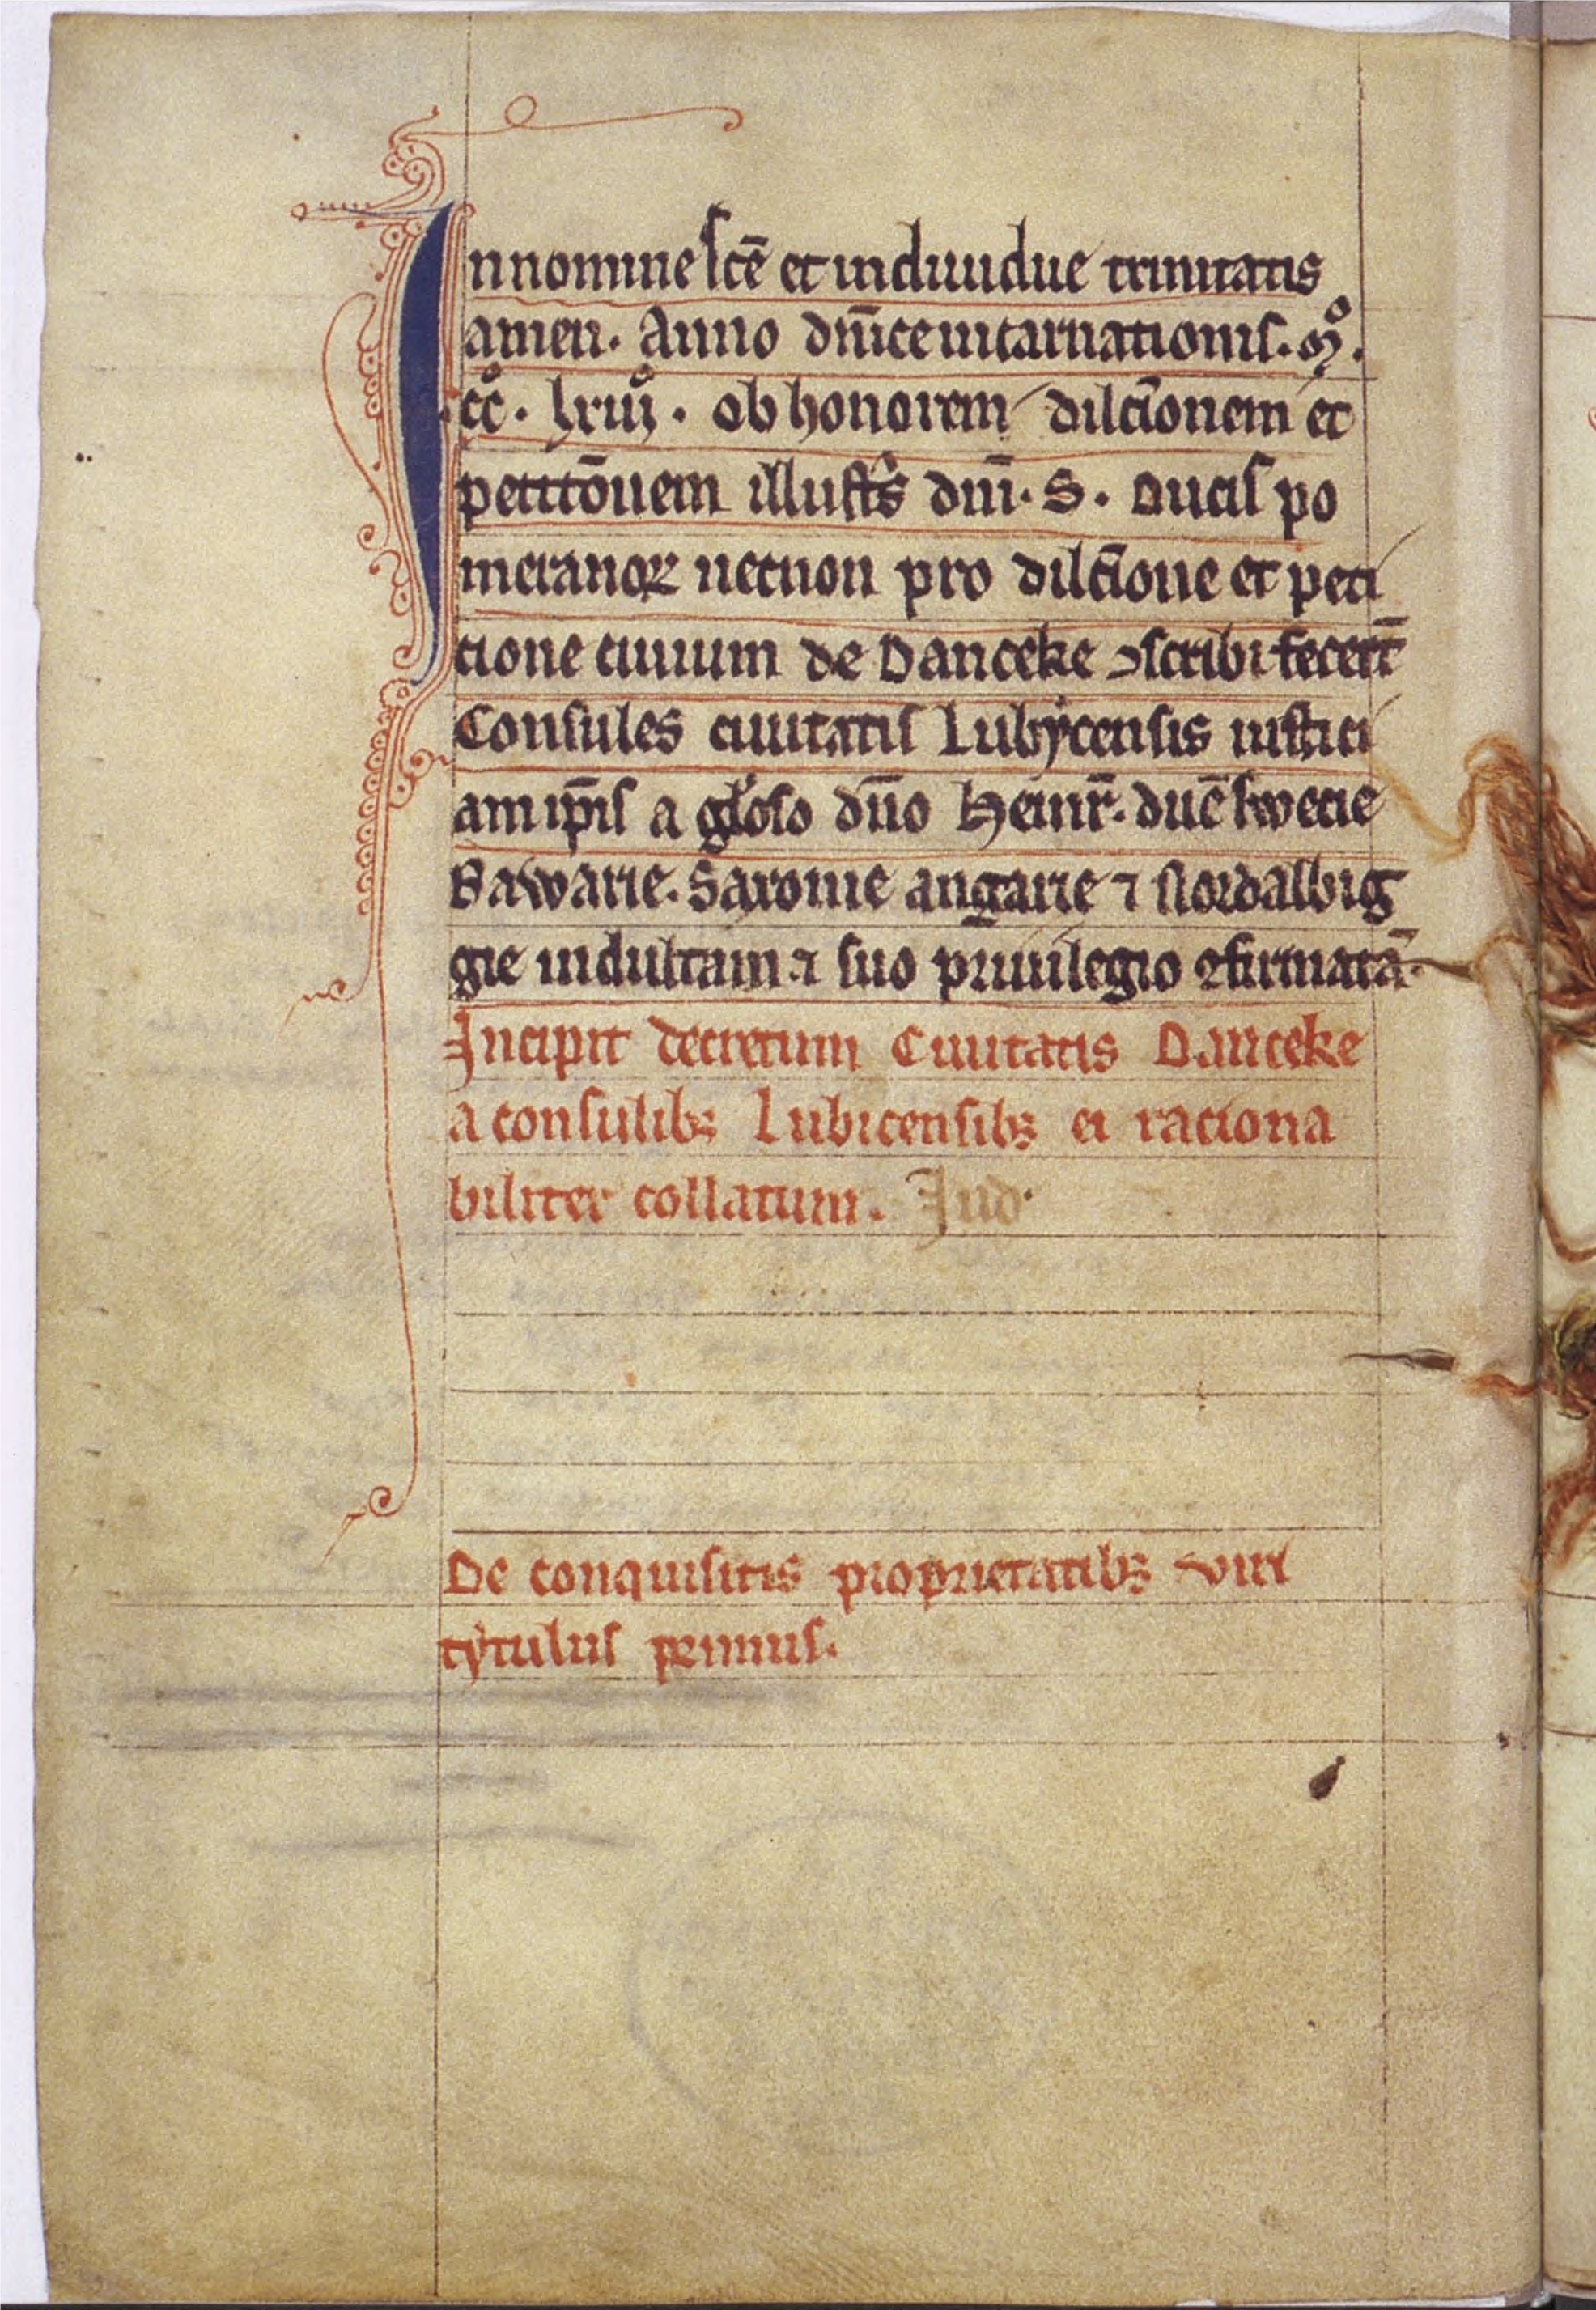 In nomine sc̄e et indiuidue trinitatis
amen. Anno dn̄ice incarnationis. mͦ.
ccͦ. lxiijͦ. Ob honorem dilc̄ionem et
petitōnem illustⁱs dn̄i. S. Ducis po
meranoꝝ necnon pro dilc̄ione et peti
cione ciuium de Danceke ↄscribi fecerт̄
Consules ciuitatis Lubẏcensis iustici
am ip̄is a gl̕oso dn̄o Heinr̄. duc̄ swecie
Bawarie. Saxonie angarie ⁊ Nordalbig
gie indultam ⁊ suo priuilegio ꝯfirmatā.
Incipit decretum Ciuitatis Danceke
a consulibꝫ Lubicensibꝫ ei raciona
biliter collatum. Iud.
De conquisitis proprietatibꝫ viri
tẏtulus primus.